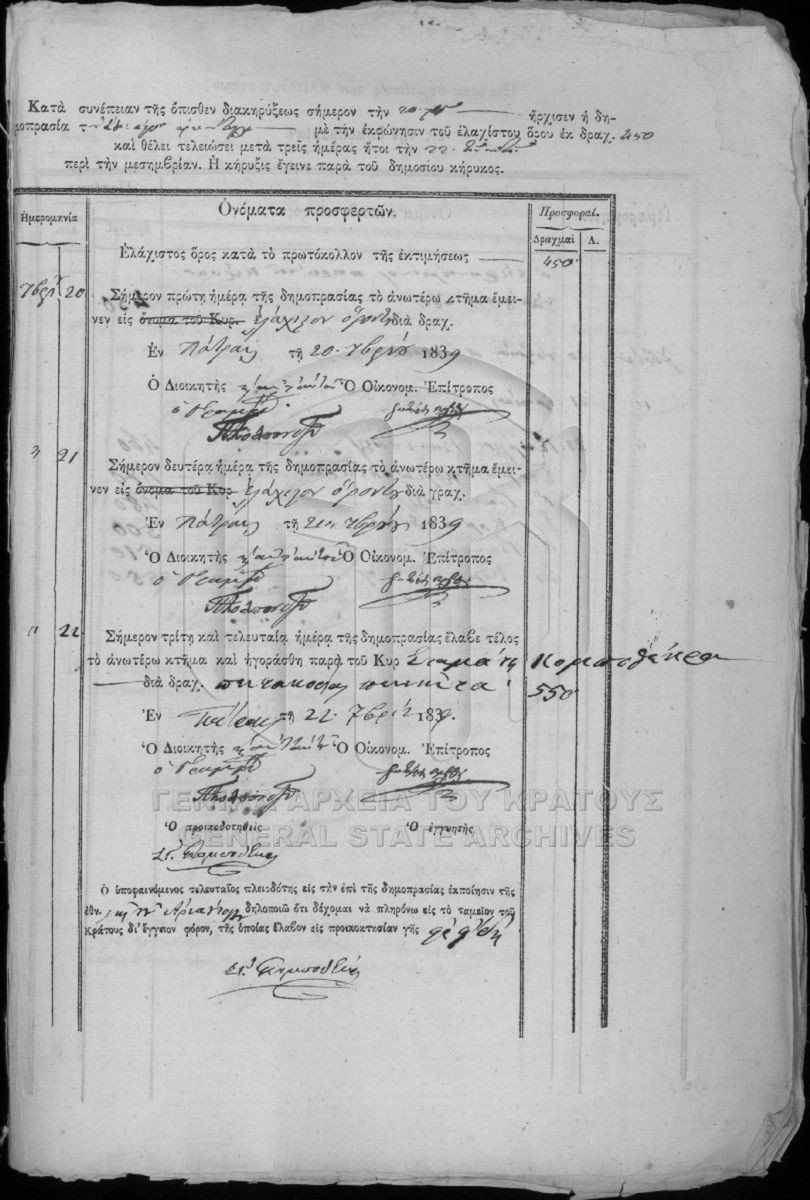 Κατὰ συνέπειαν τῆς ὄπισθεν διακηρύξεως σήμερον τὴν 20 ἤρχισεν ἡ δη-
μοπρασία μὲ τὴν ἐκφώνησιν τοῦ ἐλαχίστου ὅρου ἐκ δραχ. 450
καὶ θέλει τελειώσει μετὰ τρεῖς ἡμέρας ἤτοι τὴν 22
περὶ τὴν μεσημβρίαν. Ἡ κήρυξις ἔγεινε παρὰ τοῦ δημοσίου κήρυκος.
Ἡμερομηνία
Ὀνόματα προσφερτῶν.
Προσφοραί.
Δραχμαὶ Λ.
Ἐλάχιστος ὅρος κατὰ τὸ πρωτόκολλον τῆς ἐκτιμήσεως 450
7βρ 20
Σήμερον πρώτη ἡμέρα τῆς δημοπρασίας τὸ ἀνωτέρω κτῆμα ἔμει-
νεν εἰς ὄνομα τοῦ Κυρ. ἐλάχιστον ὅρον διὰ δραχ.
Ἐν Πάτραις τῇ 20 7βρίου 1839
Ὁ Διοικητὴς Ὁ Οἰκονομ. Ἐπίτροπος
" 21
Σήμερον δευτέρα ἡμέρα τῆς δημοπρασίας τὸ ἀνωτέρω κτῆμα ἔμει-
νεν εἰς ὄνομα τοῦ Κυρ ἐλάχιστον ὅρον διὰ γραχ.
Ἐν Πάτραις τῇ 21 7βρίου 1839
Ὁ Διοικητὴς Ὁ Οἰκονομ. Ἐπίτροπος
" 22
Σήμερον τρίτη καὶ τελευταία ἡμέρα τῆς δημοπρασίας ἔλαβε τέλος
τὸ ἀνωτέρω κτῆμα καὶ ἠγοράσθη παρὰ τοῦ Κυρ Σταμάτη
διὰ δραχ. πεντακοσίας πενήντα 550
Ἐν Πάτραις τῇ 22 7βρίου 1839.
Ὁ Διοικητὴς Ὁ Οἰκονομ. Ἐπίτροπος
ΓΕΝΙΚΑ ΑΡΧΕΙΑ ΤΟΥ ΚΡΑΤΟΥΣ
GENERAL STATE ARCHIVES
Ὁ προικοδοτηθεὶς Ὁ ἐγγυητὴς
Ὁ ὑποφαινόμενος τελευταῖος πλειοδότης εἰς τὴν ἐπὶ τῆς δημοπρασίας ἐκποίησιν τῆς
ἐθν. δηλοποιῶ ὅτι δέχομαι νὰ πληρόνω εἰς τὸ ταμεῖον τοῦ
Κράτους δι' ἔγγειον φόρον, τῆς ὁποίας ἔλαβον εἰς προικοκτησίαν γῆς